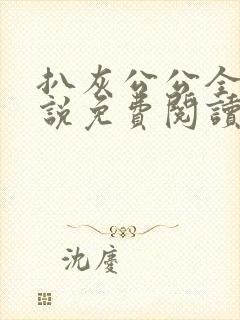 扒灰公公全
說免費閱讀
沈慶